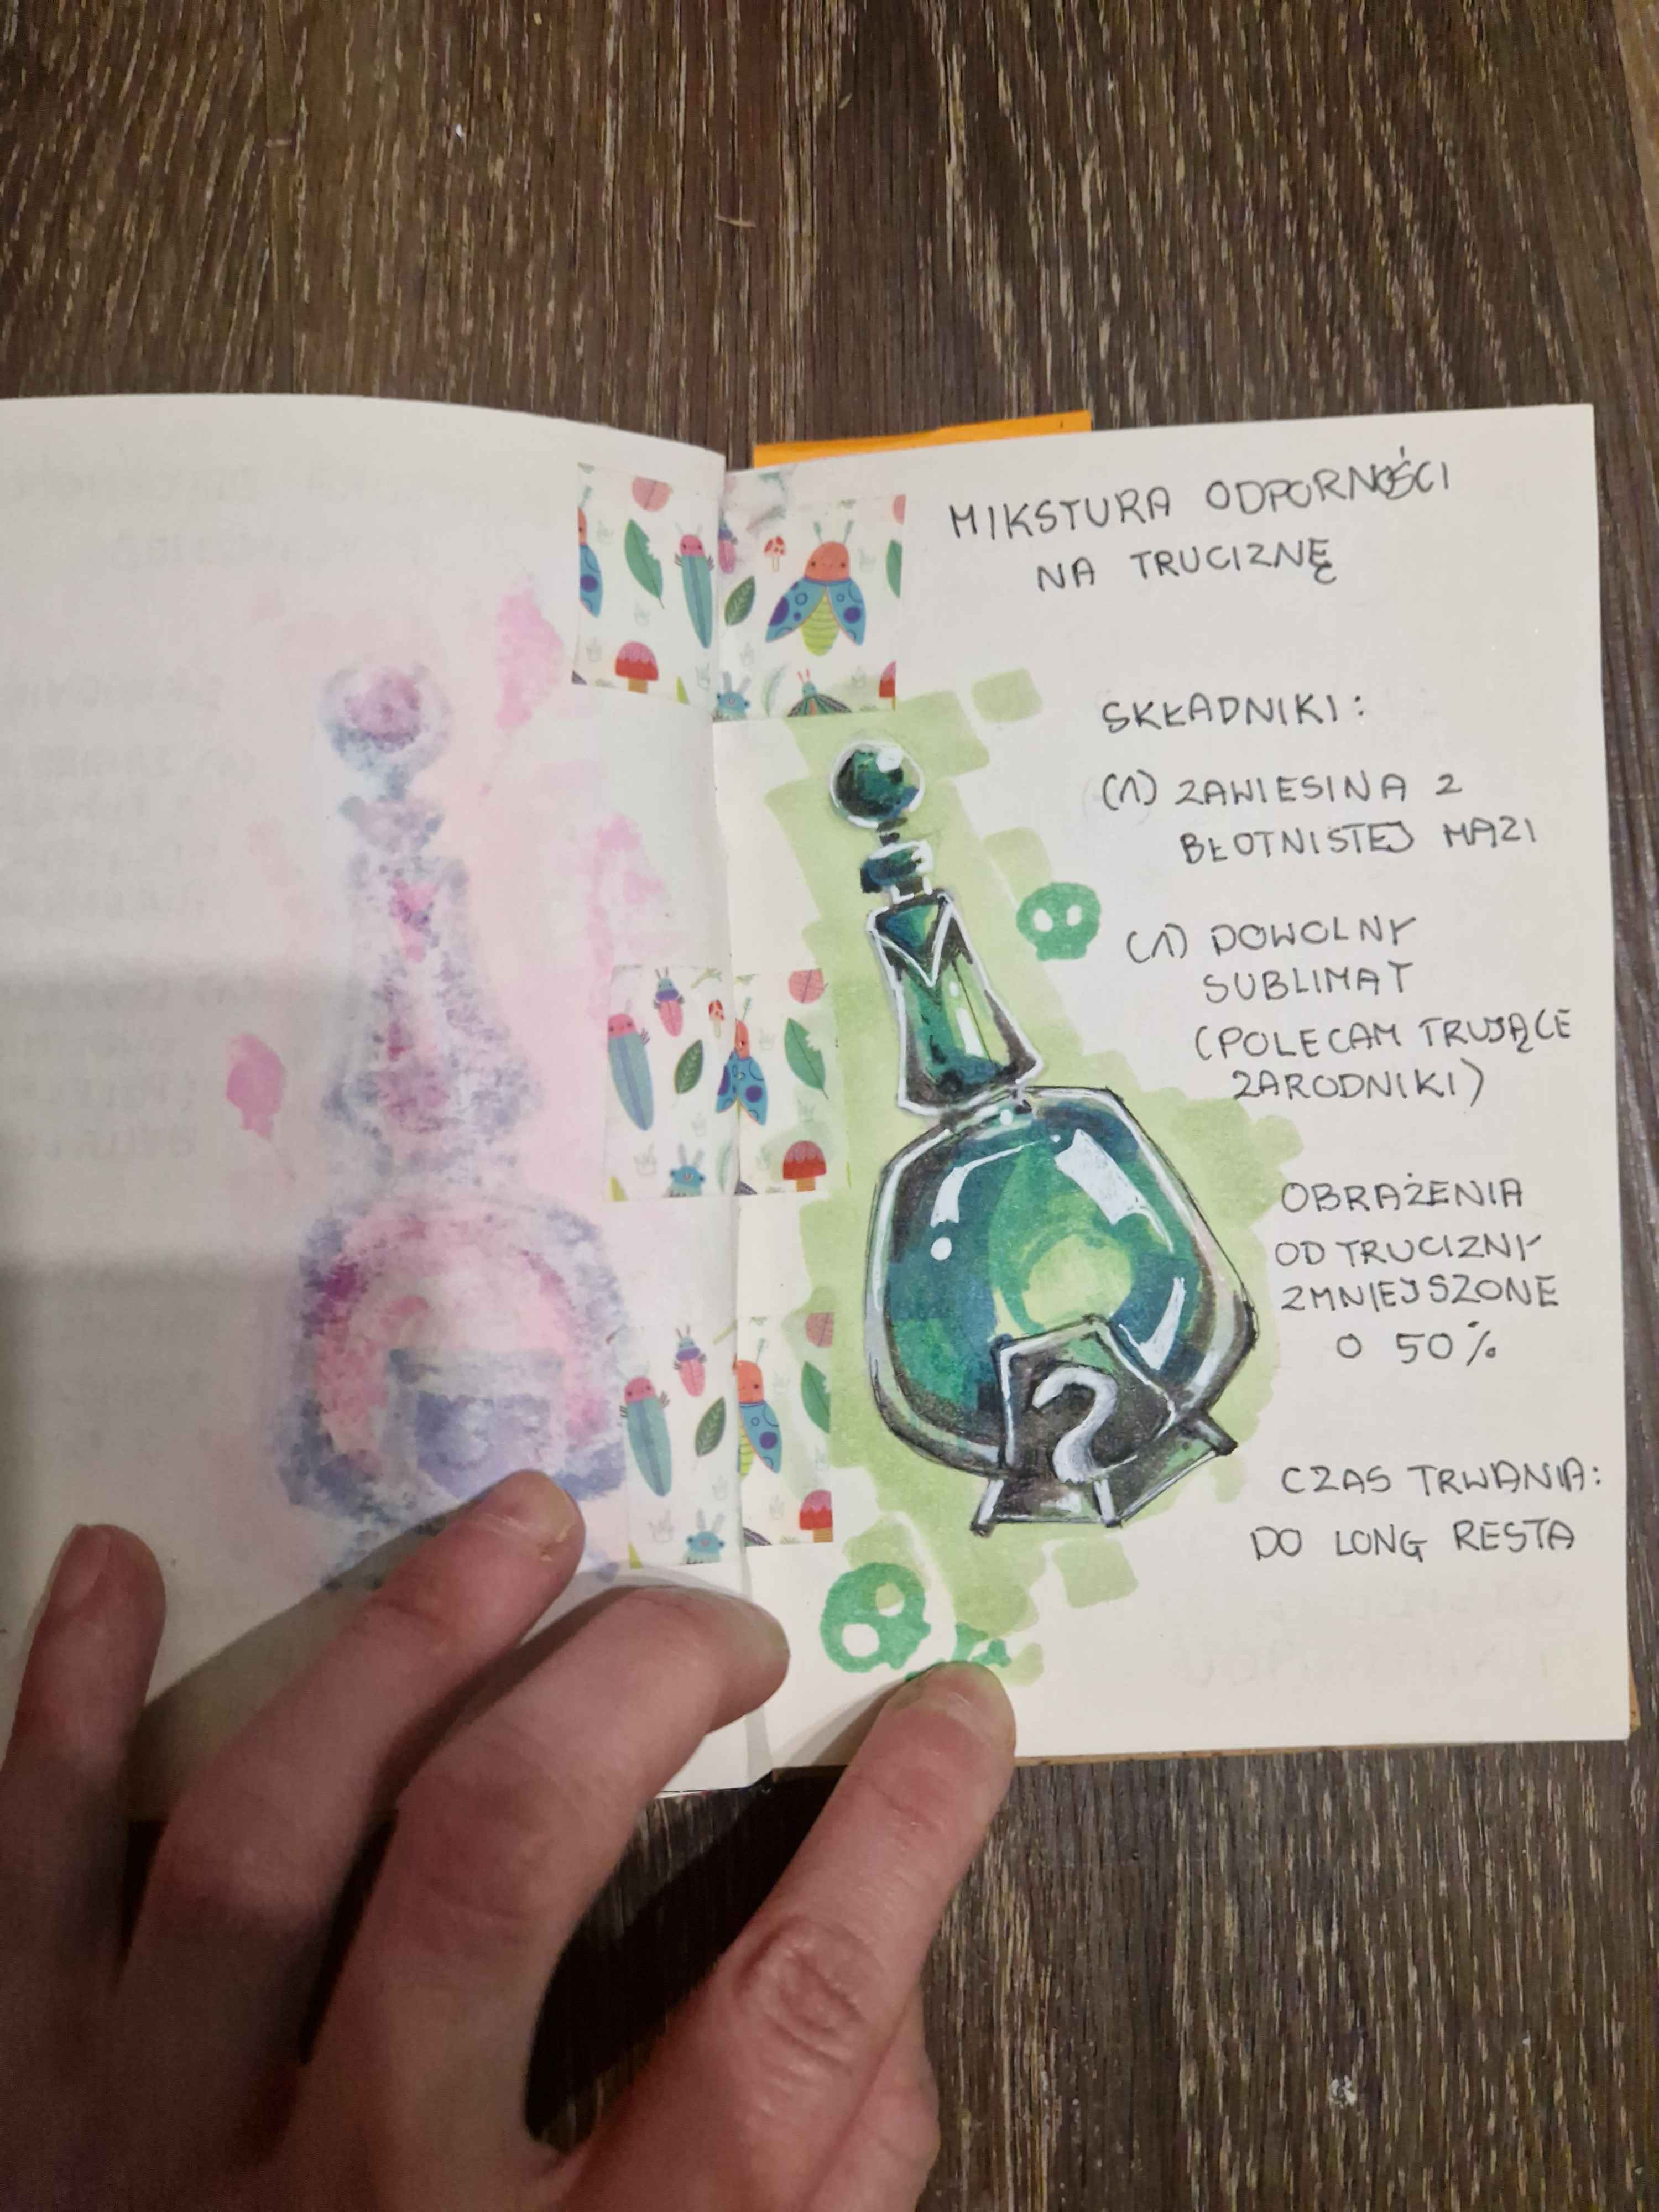 MIKSTURA ODPORNOŚCI
NA TRUCIZNĘ
SKŁADNIKI:
(1) ZAWIESINA Z
BŁOTNISTEJ MAZI
(1) DOWOLNY
SUBLIMAT
(POLECAM TRUJĄCE
ZARODNIKI)
OBRAŻENIA
OD TRUCIZNY
ZMNIEJSZONE
O 50%
CZAS TRWANIA:
DO LONG RESTA
?